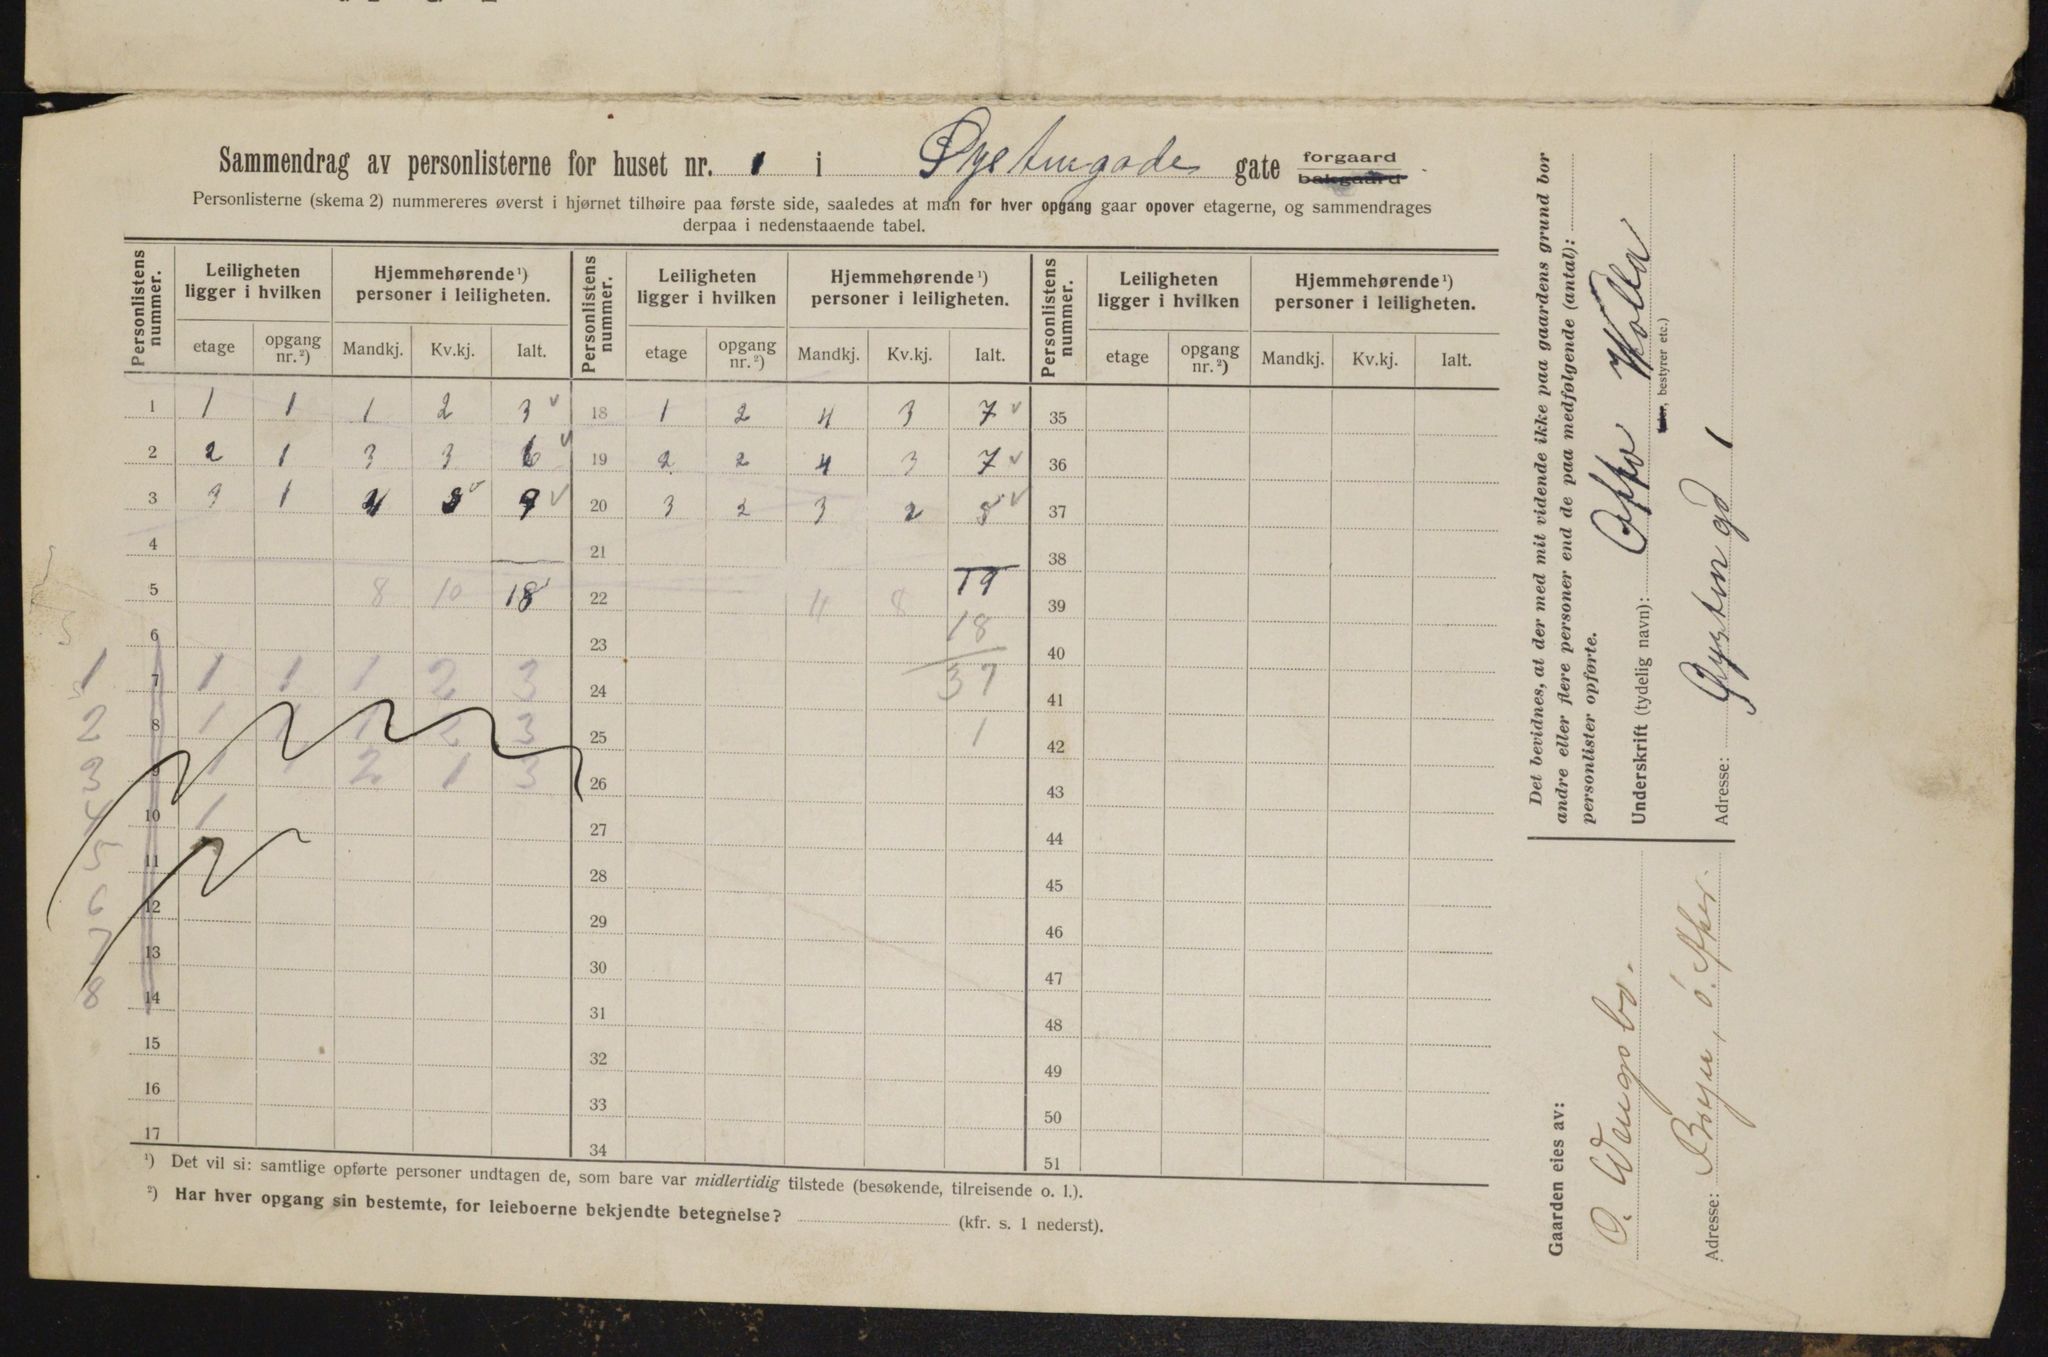 Sammendrag av personlisterne for huset nr. 1 i Øystengade gate forgaard bakgaard
Personlisterne (skema 2) nummereres øverst i hjørnet tilhøire paa første side, saaledes at man for hver opgang gaar opover etagerne, og sammendrages
derpaa i nedenstaaende tabel.
Personlistens nummer. Leiligheten ligger i hvilken Hjemmehørende ¹) personer i leiligheten. Personlistens nummer. Leiligheten ligger i hvilken Hjemmehørende ¹) personer i leiligheten. Personlistens nummer. Leiligheten ligger i hvilken Hjemmehørende ¹) personer i leiligheten.
etage opgang nr. ²) Mandkj. Kv.kj. Ialt. etage opgang nr. ²) Mandkj. Kv.kj. Ialt. etage opgang nr. ²) Mandkj. Kv.kj. Ialt.
1 1 1 1 2 3 18 1 2 4 3 7 35
2 2 1 3 3 6 19 2 2 4 3 7 36
3 3 1 4 5 9 20 3 2 3 2 5 37
4 21 38
5 8 10 18 22 11 8 19 39
6 23 18 40
1 7 1 1 1 2 3 24 37 41
2 8 1 1 1 2 3 25 1 42
3 9 1 1 2 1 3 26 43
4 10 1 27 44
5 11 28 45
6 12 29 46
7 13 30 47
8 14 31 48
15 32 49
16 33 50
17 34 51
¹) Det vil si: samtlige opførte personer undtagen de, som bare var midlertidig tilstede (besøkende, tilreisende o. l.).
²) Har hver opgang sin bestemte, for leieboerne bekjendte betegnelse? (kfr. s. 1 nederst).
Det bevidnes, at der med mit vidende ikke paa gaardens grund bor
andre eller flere personer end de paa medfølgende (antal):
personlister opførte.
Underskrift (tydelig navn):
, bestyrer etc.)
Adresse: Øysten gd 1
Gaarden eies av:
O.
Adresse: Bryn, Ö. Aker.